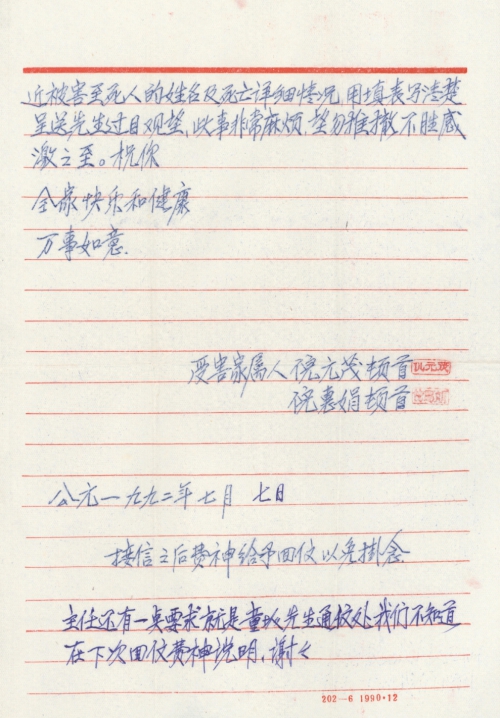 近被害至死人的姓名及死亡详细情况，用填表写清楚
呈送先生过目观望，此事非常麻烦，望勿推撤不胜感
激之至。祝你
全家快乐和健康
万事如意.
受害家属人倪元茂顿首
倪惠娟顿首
公元一九九二年七月 七日
接信之后费神给予回仪以免掛念
主任还有一点要求就是童 先生通仪处我们不知道
在下次回仪费神说明，谢々
202—6 1990·12